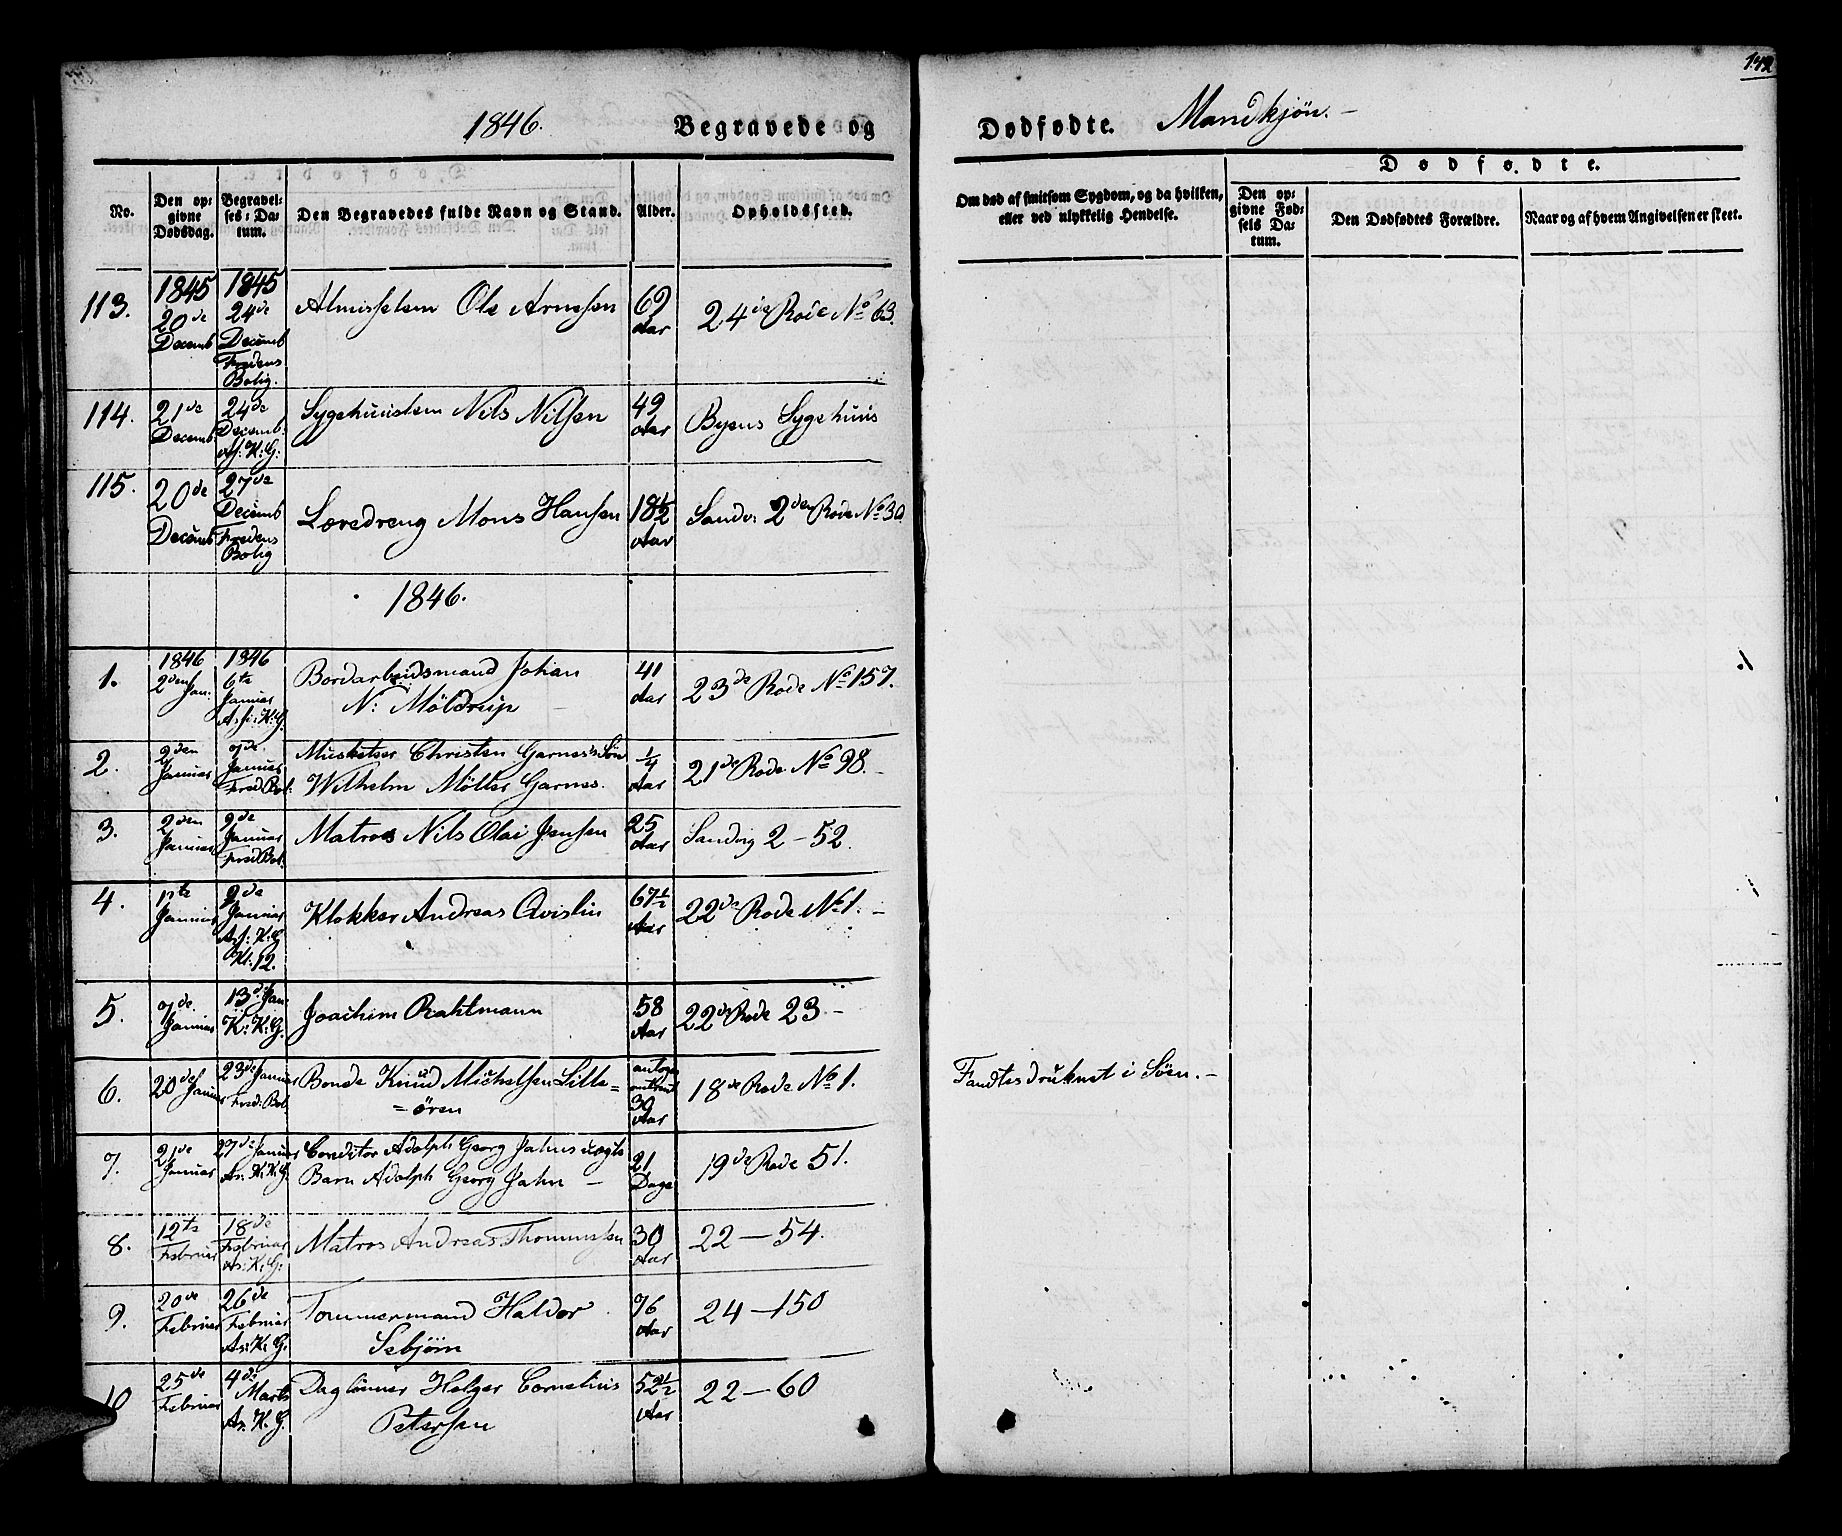 142
1846.
Begravede og
Dødfødte.
Mandkjøn.-
No.
Den op-
givne
Dødsdag.
Begravel-
ses: Da-
tum.
Den Begravedes fulde Navn og Stand.
Alder.
Opholdssted.
Om død af smitsom Sygdom, og da hvilken,
eller ved ulykkelig Hendelse.
Dødfødte.
Den op-
givne Fød-
sels Da-
tum.
Den Dødfødtes Forældre.
Naar og af hvem Angivelsen er skeet.
113.
1845
20de
Decemb
1845
24de
Decemb
Fredens
Bolig.
Almisselem Ole Arnesen
69
Aar
24de Rode No 63.
114.
21de
Decemb.
24de
Decemb.
As: K: G:
Sygehuuslem Nils Nilsen
49
Aar
Byens Sygehuus
115.
20de
Decemb
27de
Decemb
Fredens
Bolig
Læredreng Mons Hansen
18½
Aar
Sandv: 2den Rode No 30.
1846.
1.
1846
2den Jan.
1846
6te
Januar
As: K: G.
Bordarbeidsmand Johan
N: Möldrup
41
Aar
23de Rode No 157.
2.
2den
Januar
7de
Januar
Fred. Bol:
Musketeer Christen Garnes's Søn
Wilhelm Möller Garnes.
¼
Aar
21de Rode No 98.-
3.
2den
Januar
9de
Januar
Fred Bol.
Matros Nils Olai Jensen
25
Aar
Sandvig 2-52.
4.
1ste
Januar
9de
Januar
As: K: G
Kl: 12.
Klokker Andreas Qvislin
67½
Aar
22de Rode No 1.-
5.
7de
Januar
13de Jan:
K: K: G.
Joachim Rahtmann
58
Aar
22de Rode 23-
6.
20de
Januar
23de Januar
Fred: Bol.
Bonde Knud Michelsen Lille=
=ören
omtrent
39
Aar
18de Rode No 1.
Fandtes druknet i Søen.-
7.
21de
Januar
27de Januar
As: K: G.
Conditor Adolph Georg Jahns uægte
Barn Adolph Georg Jahn -
21
Dage
19de Rode 51.
8.
12te
Februar
18de
Februar
As: K: G:
Matros Andreas Thommesen
30
Aar
22-54.
9.
20de
Februar
26de
Februar
As: K: G.
Tømmermand Haldor
Sebjörn
76
Aar
24-150
10
25de
Februar
4de
Marts
As. K. G.
Daglönner Holger Cornelius
Petersen
52½
Aar
22-60